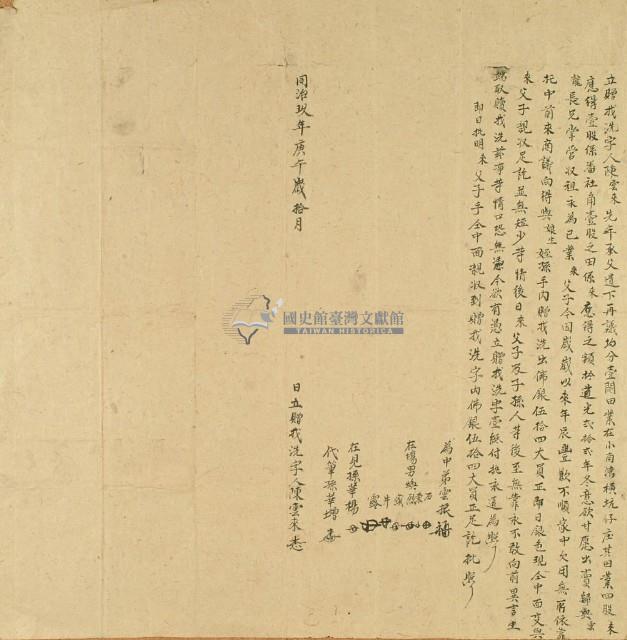 立贈找洗字人陳雲來先年承父遺下再議均分壹鬮田業在小南灣橫坑仔庄其田業四股來
應得壹股係潘社角壹股之田係來應得之額於道光弍拾弍年冬意欲甘愿出賣歸與
長兄掌管收租永為己業來父子今因歲以來年辰豐歉不順家中欠用無所依靠
托中前來商議向得與姪孫手內贈找洗出佛銀伍拾四大員正即日銀色現全中面交與
來父子親收足訖並無短少等情後日來父子及子孫人等後至無靠永不敢向前異言生
端取贖找洗等情口恐無憑今欲有憑立贈找洗字壹紙付執永遠為照
即日批明來父子手全中面親收到贈找洗字內佛銀伍拾四大員正足訖批照
為中弟雲振
在場男
在見孫華楊
代筆孫華增
同治玖年庚午歲拾月 日立贈找洗字人陳雲來
國史館臺灣文獻館
TAIWAN HISTORICA